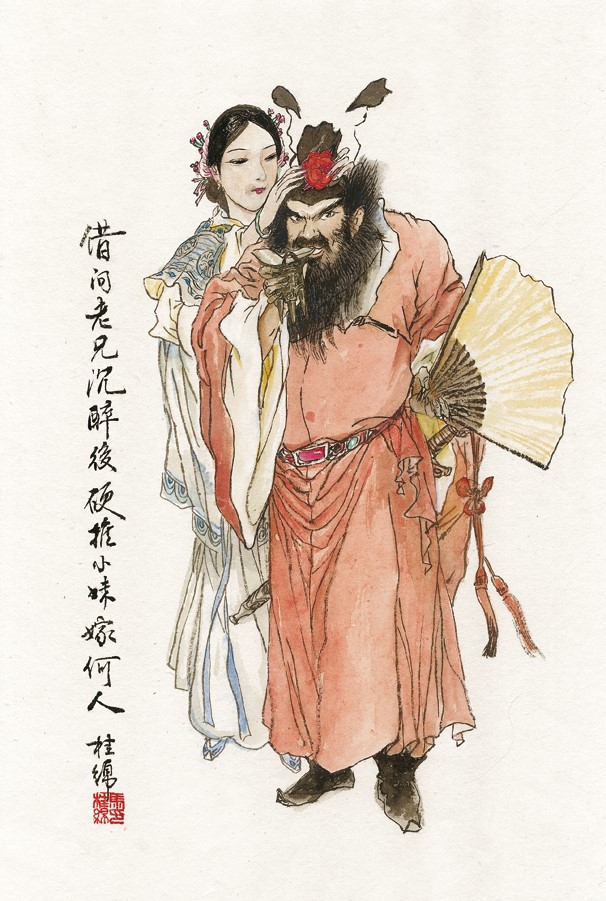 借问老兄沉醉後硬推小妹嫁何人
桂綿